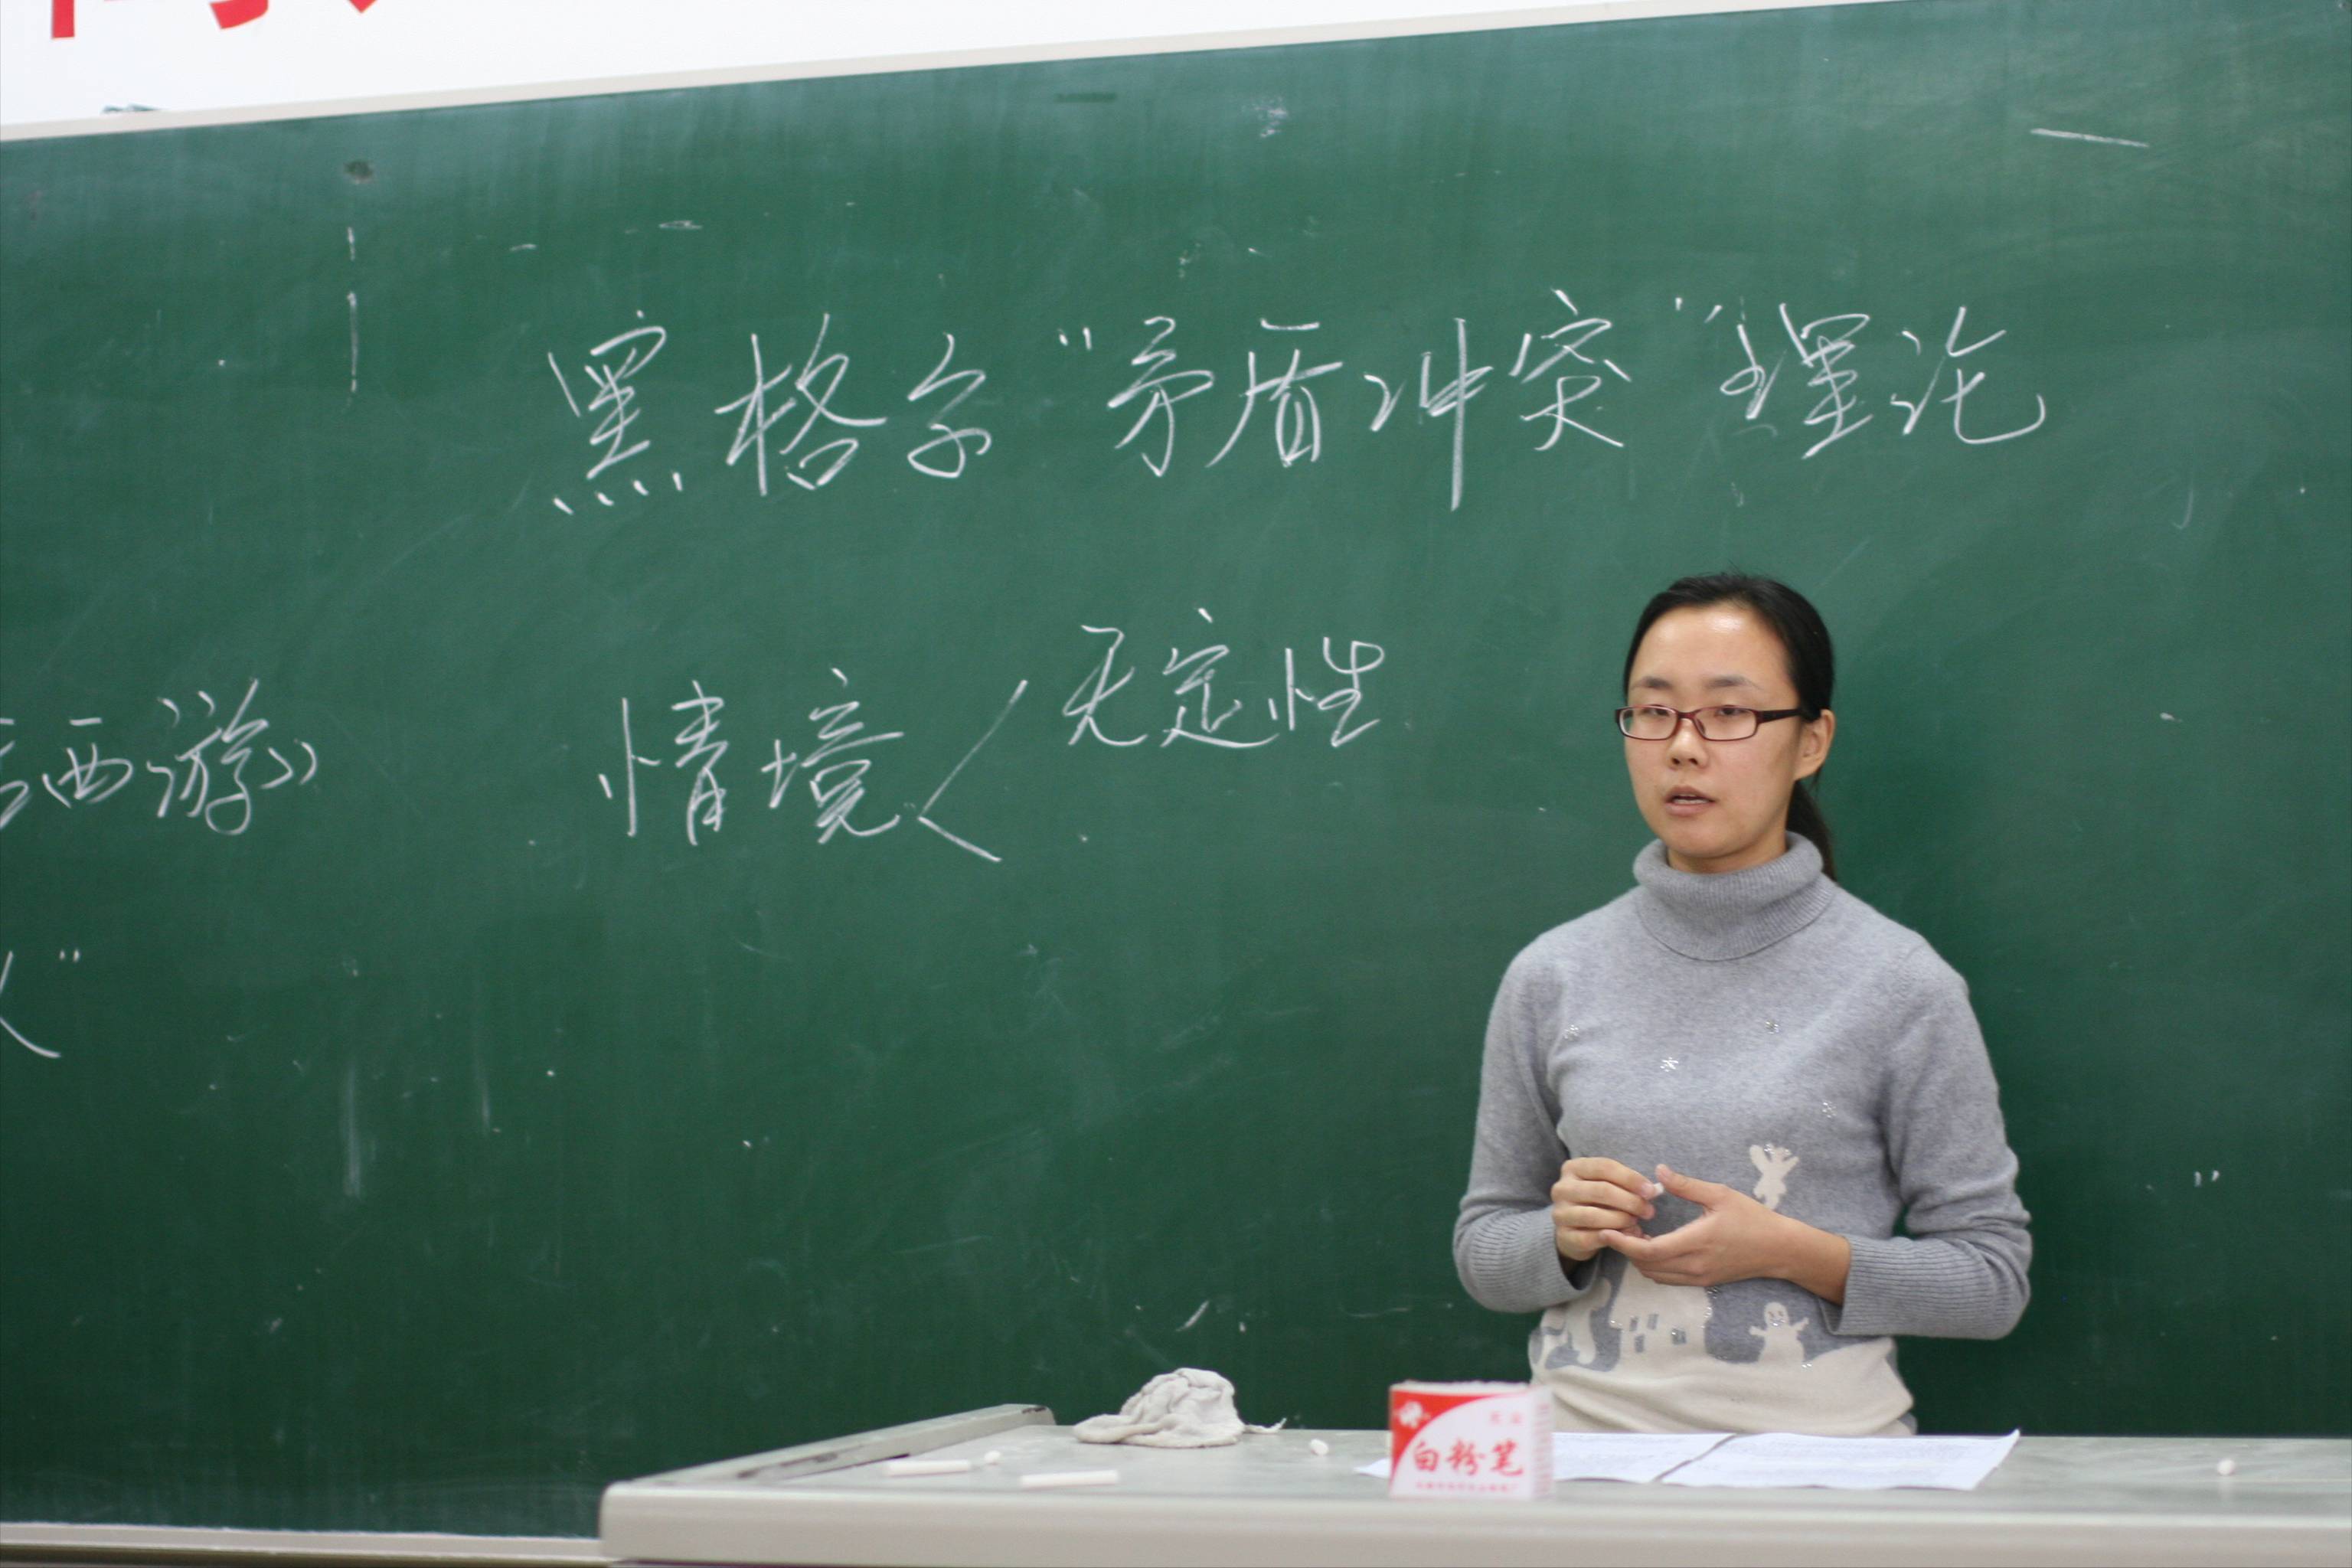 黑格尔“矛盾冲突”理论
无定性
西游》
情境
白粉笔